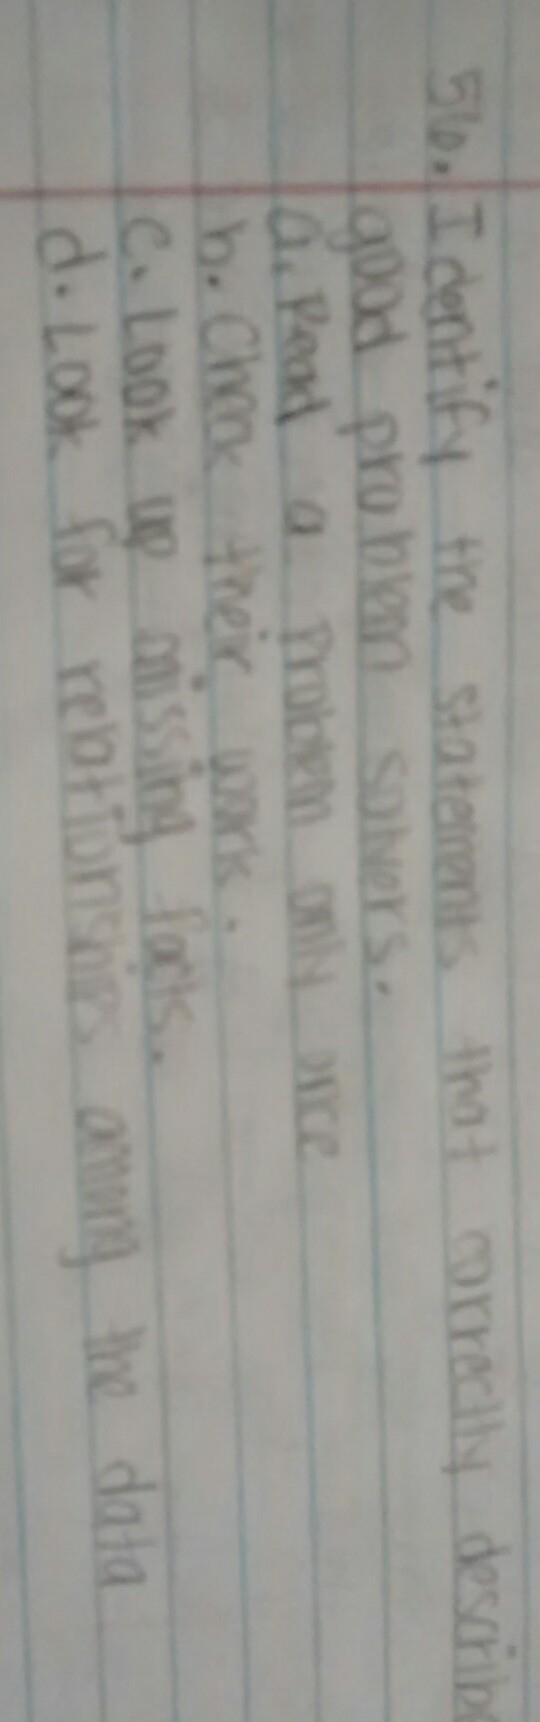 56. Identify the statements that correctly describe
good problem solvers.
a. Read a problem only once
b. Check their work.
c. Look up missing facts.
d. Look for relationships among the data